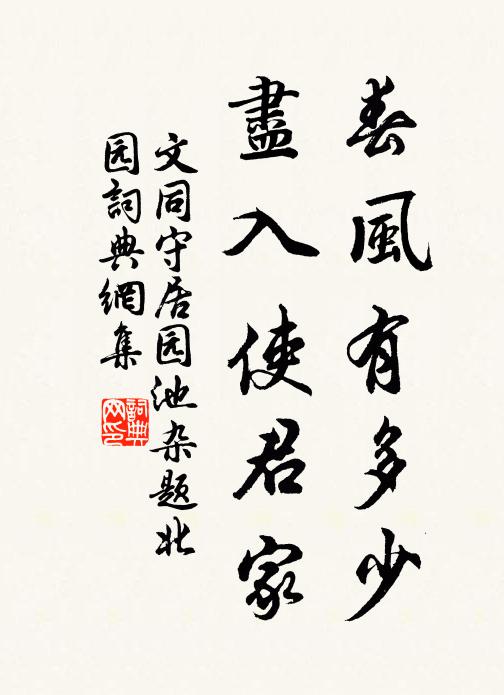 春風有多少
盡入使君家
文同守居园池杂题北
园詞典網集
詞典
网印